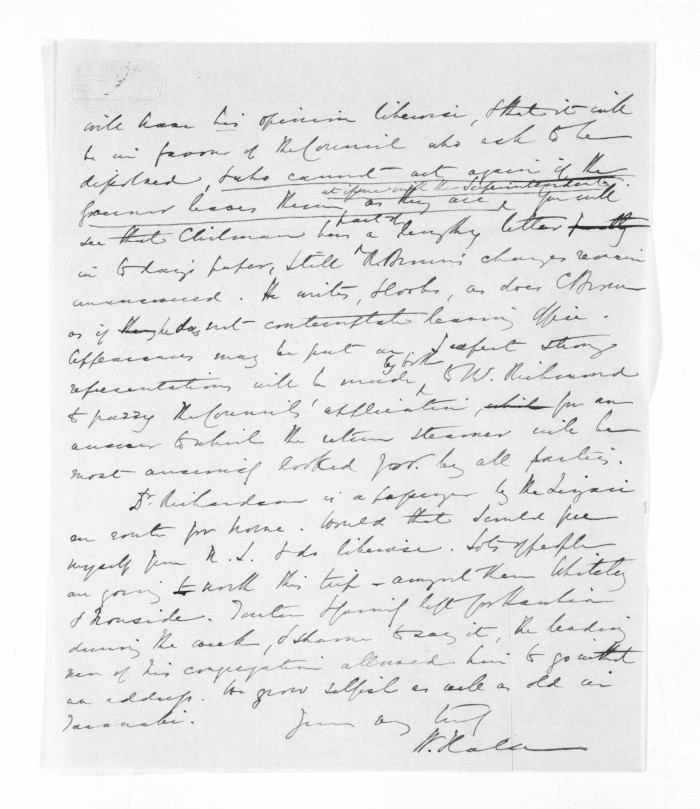 will have his opinion likewise, & that it will
be in favor of the Council who ask to be
dissolved, & who cannot act again if the
at issue with the Superintendent.
Governor leaves them as they are, You will
part of
see that Chilman has a lengthy letter partly
in to day's paper, still R Brown's charges remain
unanswered. He writes, & looks, as does C Brown
as if he does not contemplate leaving office.
Appearances may be put on, I expect strong
by both
representations will be made, to W. Richmond
to parry the Councils' application, which for an
answer to which the return steamer will be
most anxiously looked for by all parties.
Dr. Richardson is a passenger by the
en route for home. Would that I could free
myself from N. Z. & do likewise. Lots of people
are going to north this trip - amongst them Whiteley
& Ironside. & family left for
during the week, & shame to say it, the leading
men of his congregation allowed him to go without
an address. We grow selfish as well as old in
Taranaki.
Yours very truly
W. Halse